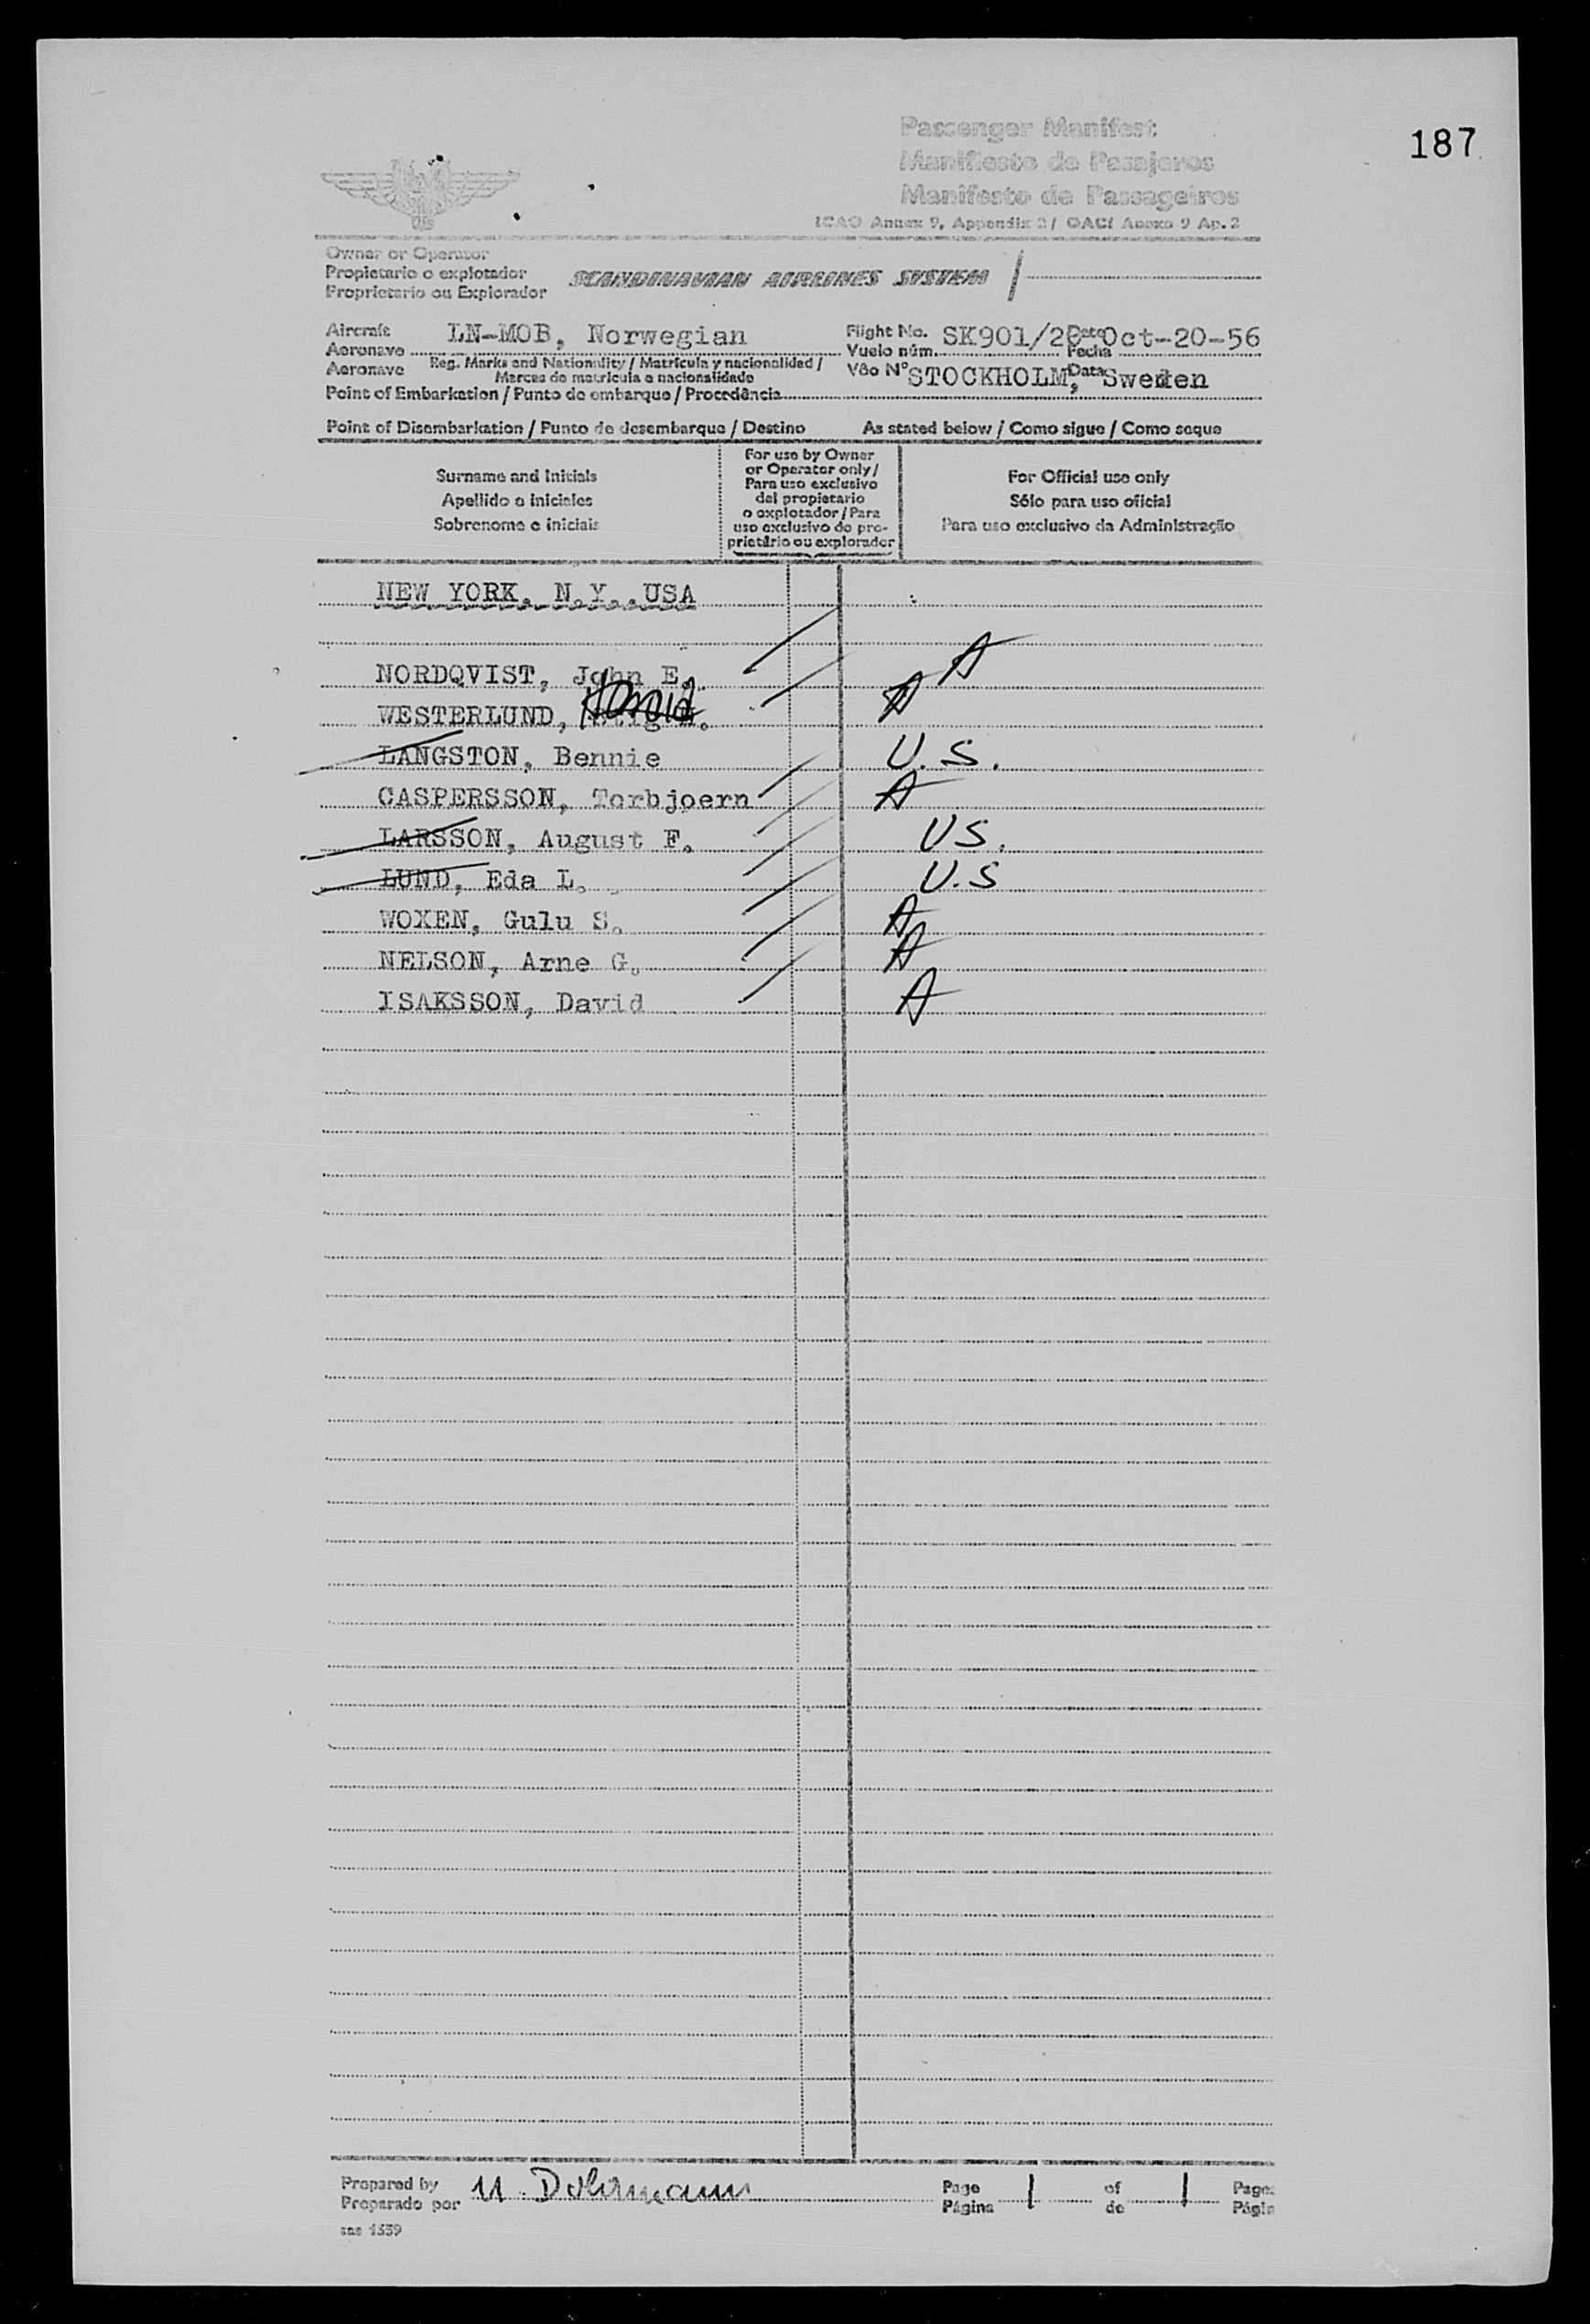 187
Passenger Manifest
Manifiesto de Pasajeros
Manifesto de Passageiros
ICAO Annex 9, Appendix 2 / OACI Anexo 9 Ap. 2
Owner or Operator
Propietario o explotador
Proprietario ou Explorador
SCANDINAVIAN AIRLINES SYSTEM /
Aircraft
Aeronave
Aeronave
LN-MOB, Norwegian
Reg. Marks and Nationality / Matrícula y nacionalidad /
Marcas de matrícula e nacionalidade
Flight No.
Vuelo núm.
Vôo Nº
SK901/20
Date
Fecha
Data
Oct-20-56
Point of Embarkation / Punto de embarque / Procedência
STOCKHOLM, Sweden
Point of Disembarkation / Punto de desembarque / Destino As stated below / Como sigue / Como seque
Surname and Initials
Apellido e iniciales
Sobrenome e iniciais
For use by Owner
or Operator only /
Para uso exclusivo
del propietario
o explotador / Para
uso exclusivo do pro-
prietário ou explorador
For Official use only
Sólo para uso oficial
Para uso exclusivo da Administração
NEW YORK, N.Y.,USA
NORDQVIST, John E. A
WESTERLUND, A
LANGSTON, Bennie U.S.
CASPERSSON, Torbjoern A
LARSSON, August F. US.
LUND, Eda L. U.S
WOXEN, Gulu S. A
NELSON, Arne G. A
ISAKSSON, David A
Prepared by
Preparado por
Page
Página
1
of
de
1
Page
Págin
sas 1339